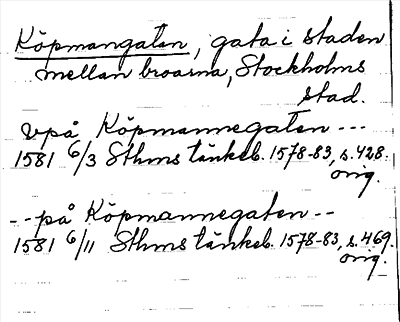 Köpmangatan, gata i staden
mellan broarna, Stockholms
stad.
vpå Köpmannegaten ---
1581 6/3 Sthms tänkeb. 1578-83, s. 428.
orig.
--på Köpmannegaten --
1581 6/11 Sthms tänkeb. 1578-83, s. 469.
orig.